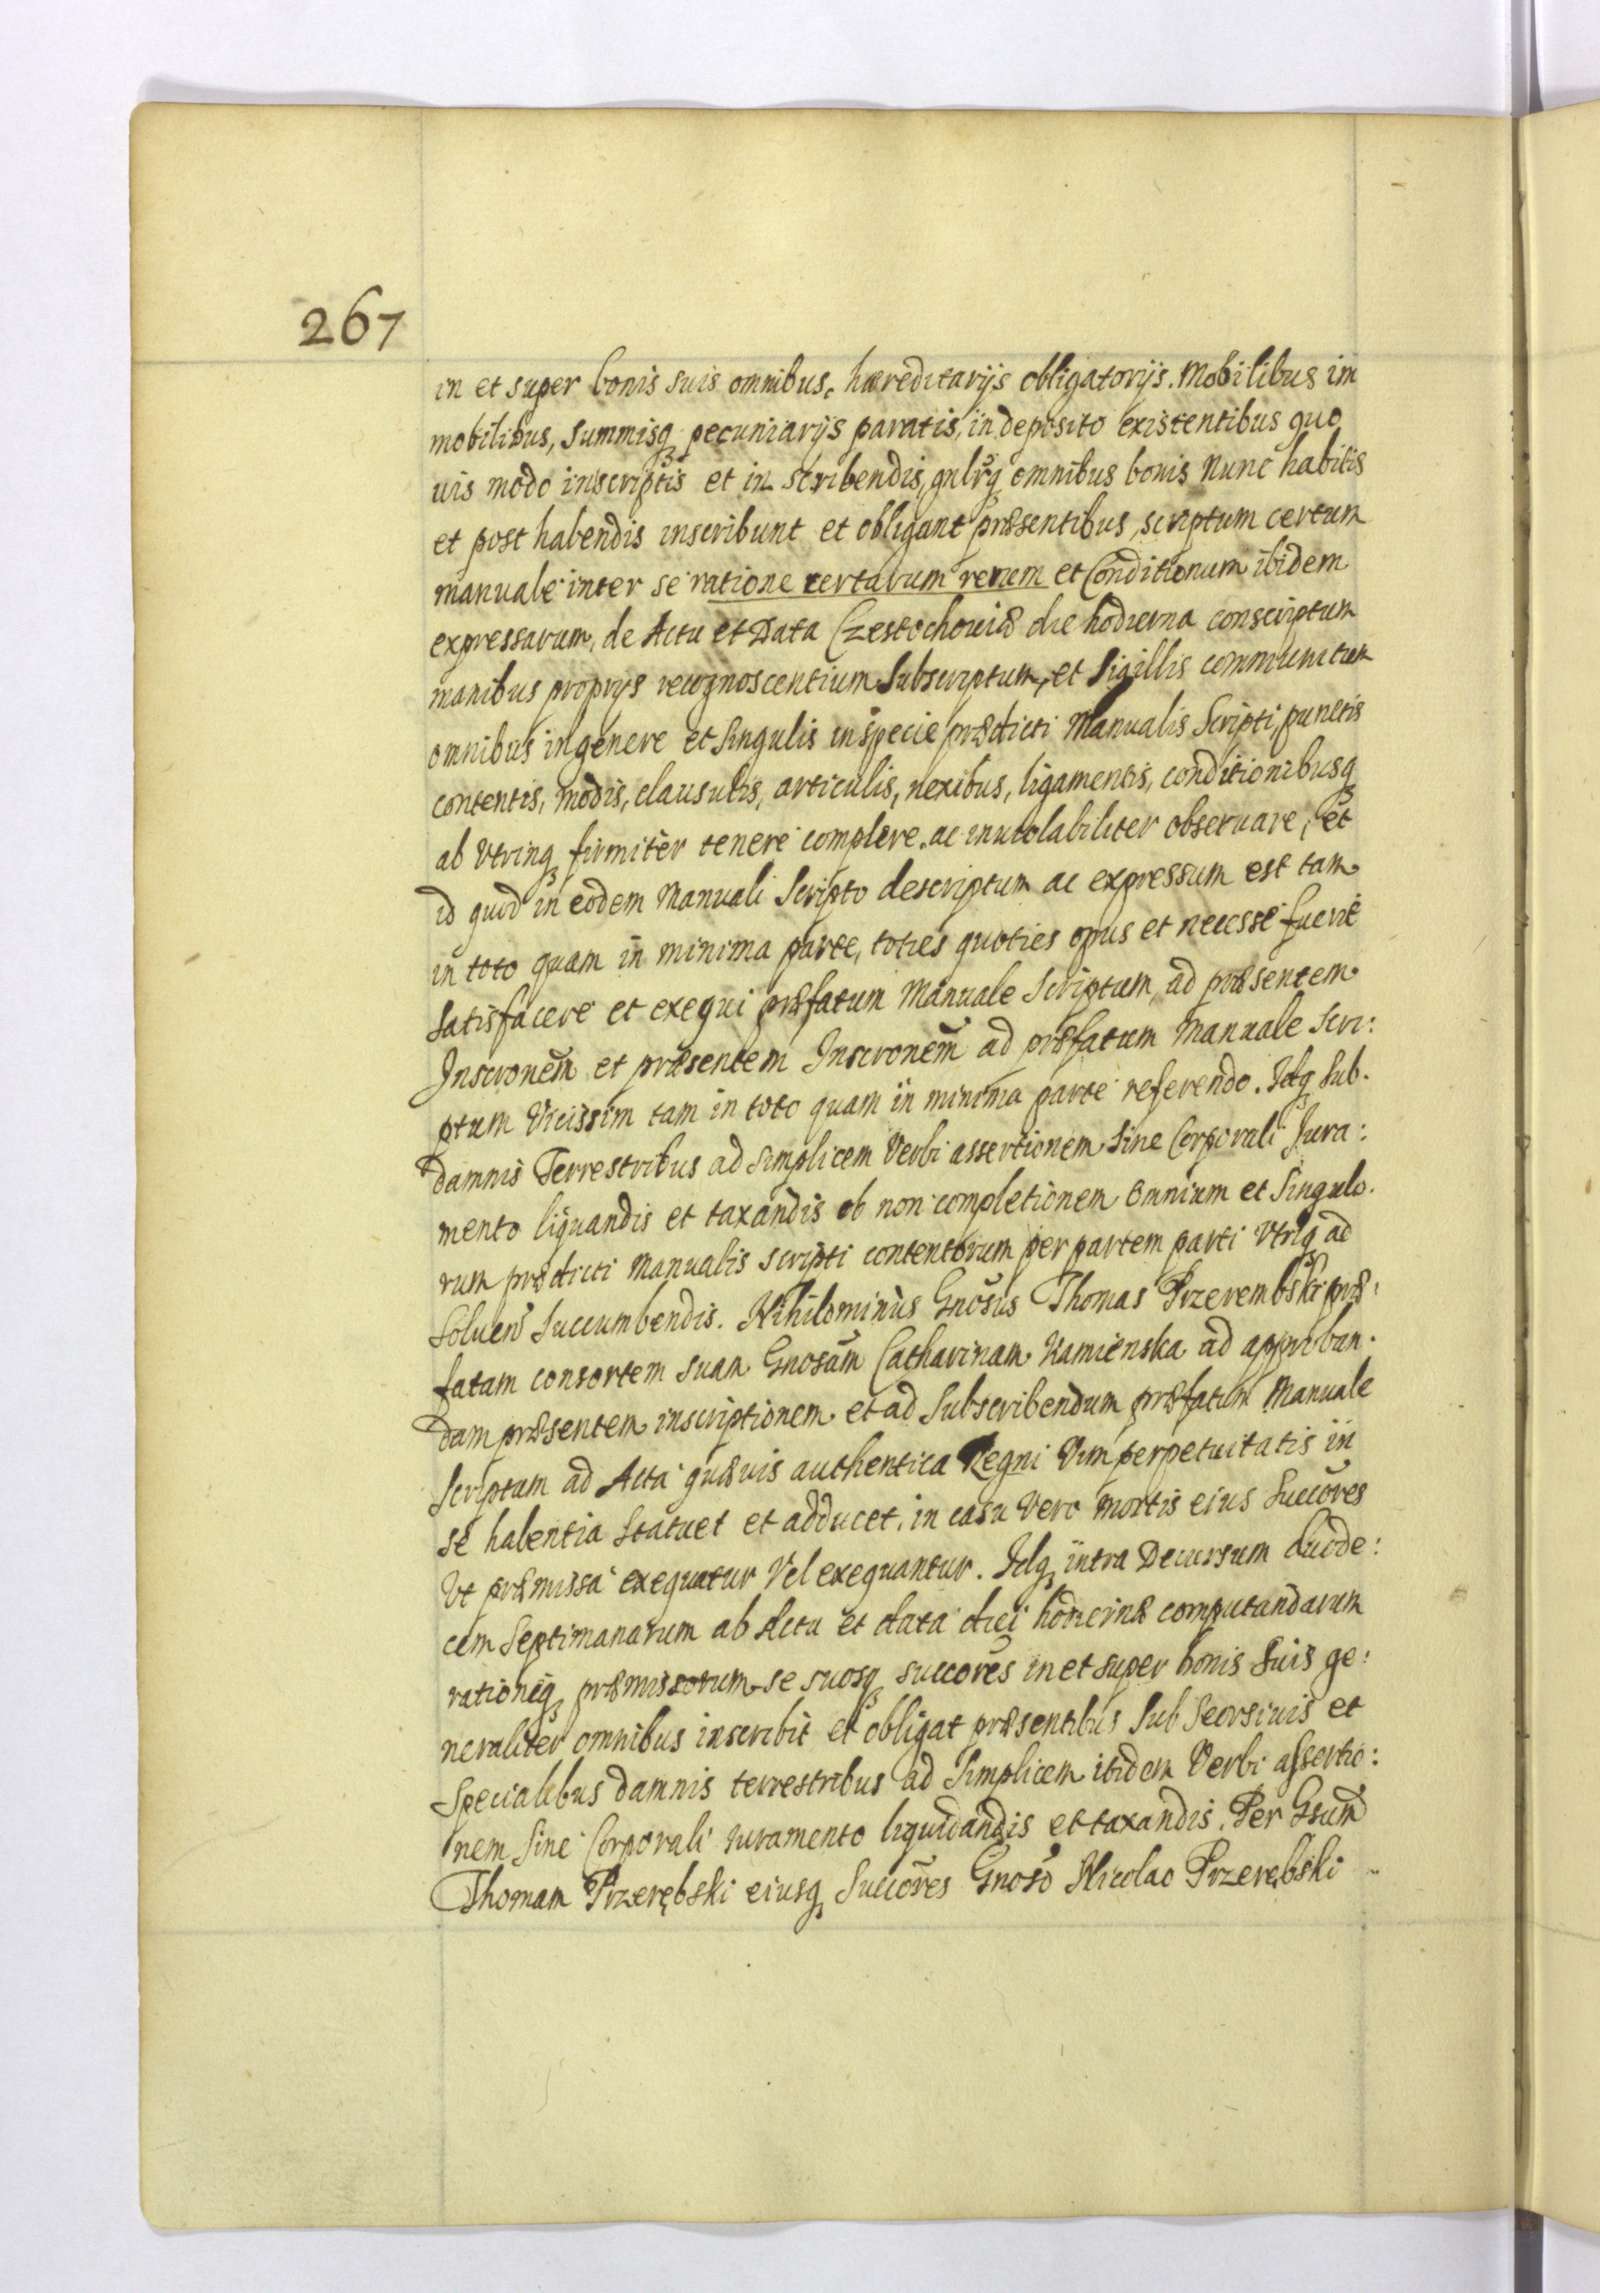 267
in et super bonis suis omnibus, hæreditarijs obligatorijs. Mobilibus im
mobilibus, summisq₃ pecuniarijs paratis, in deposito existentibus quo
uis modo inscriptis et in scribendis, gnlrq₃ omnibus bonis nunc habitis
et post habendis inscribunt et obligant præsentibus, scriptum certum
manuale inter se ratione certarum rerum et Conditionum ibidem
expressarum, de Actu et Data Czestochouiæ die hodierna conscriptum
manibus proprijs recognoscentium Subscriptum, et Sigillis communitum
omnibus in genere et Singulis in specie prædicti Manualis Scripti, punctis
contentis, modis, clausulis, articulis, nexibus, ligamentis, conditionibusq₃
ab Vtrinq₃ firmiter tenere complere. ac inuiolabiliter obseruare, et
id quod in eodem Manuali Scripto descriptum ac expressum est tam
in toto quam in minima parte, toties quoties opus et necesse fuerit
Satisfacere et exequi præfatum Manuale Scriptum ad præsentem
Inscronem̃ et præsentem Inscronem̃ ad præfatum Manuale Scri:
ptum Vicissim tam in toto quam in minima parte referendo. Idq₃ Sub.
damnis Terrestribus ad Simplicem Verbi assertionem Sine Corporali Jura:
mento liquandis et taxandis ob non completionem omnium et Singulo.
rum prædicti Manualis scripti contentorum per partem parti Vtriq₃ ad
Soluen̄ Succumbendis. Nihilominus Gnōsus Thomas Przerembski præ:
fatam consortem suam Gnosam̃ Catharinam Kamienska ad approban.
dam præsentem inscriptionem et ad Subscribendum præfatum Manuale
Scriptum ad Acta quæuis authentica Regni Vim perpetuitatis in
se habentia Statuet et adducet. in casu Vero Mortis eius Succōres
Vt præmissa exequatur Vel exequantur. Idq₃ intra Decursum duode:
cem Septimanarum ab Actu et data diei hodiernæ computandarum
rationeq₃ præmissorum se suosq₃ succorēs in et super bonis Suis ge:
neraliter omnibus inscribit et obligat præsentibus Sub Seorsiuis et
Specialibus damnis terrestribus ad Simplicem itidem Verbi assertio:
nem Sine Corporali iuramento liquidandis et taxandis. Per Gsum̃
Thomam Przerębski eiusq₃ Succōres Gnosō Nicolao Przerębski